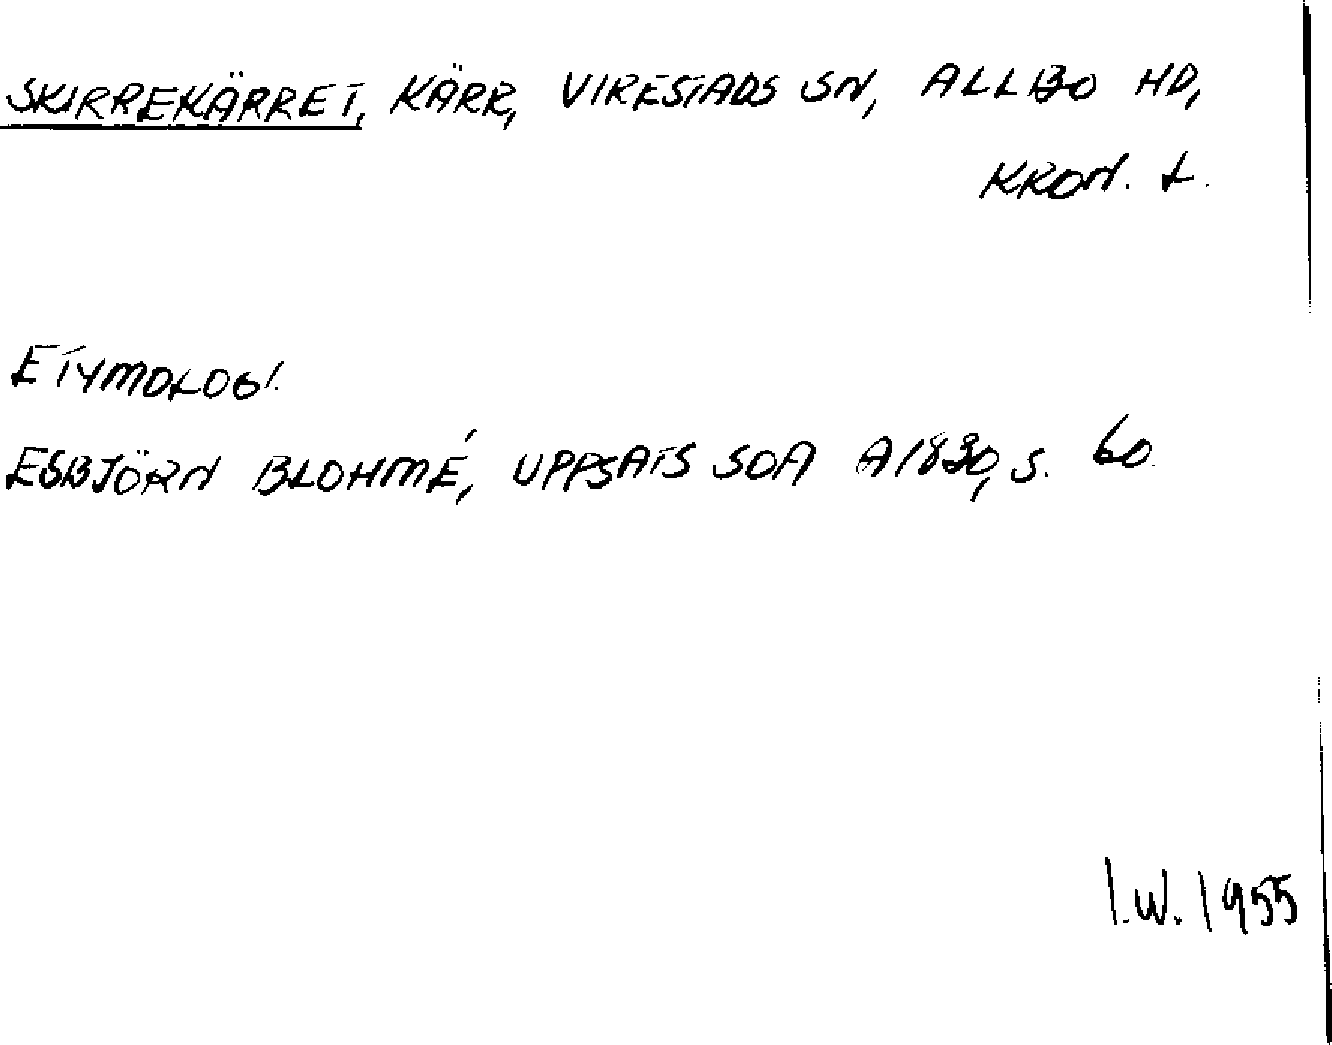 SKIRREKÄRRET, KÄRR, VIRESTADS SN, ALLBO HD,
KRON. L.
ETYMOLOGI.
ESBJÖRN BLOHMÉ, UPPSATS SOA A1830, S. 60.
I.W. 1955